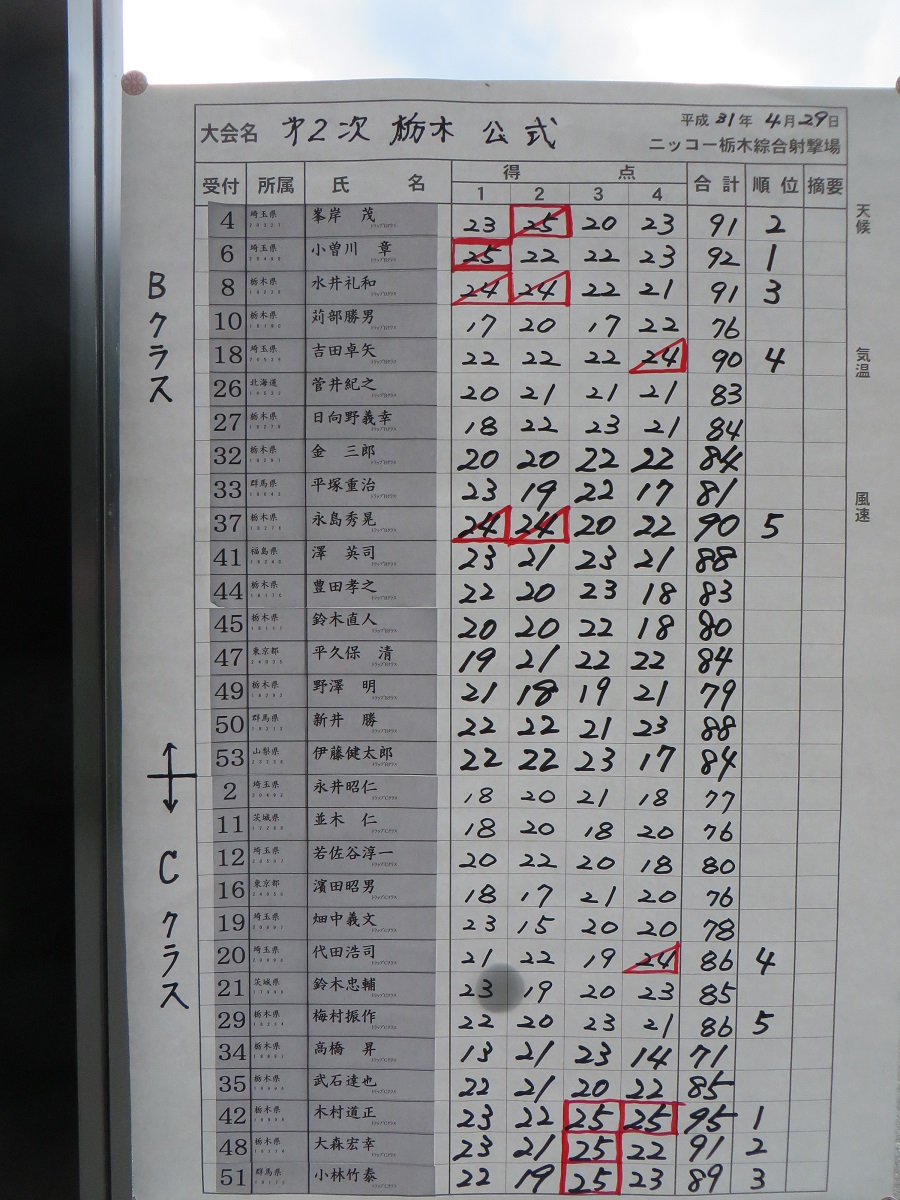 大会名 第2次 栃木 公式 平成 31年 4月29日
ニッコー栃木綜合射撃場
受付 所属 氏 名 得 点 合計 順位 摘要
1 2 3 4
4 埼玉県 峯岸 茂 23 25 20 23 91 2
6 埼玉県 小曽川 章 25 22 22 23 92 1
8 栃木県 水井礼和 24 24 22 21 91 3
10 栃木県 苅部勝男 17 20 17 22 76
18 埼玉県 吉田卓矢 22 22 22 24 90 4
26 北海道 菅井紀之 20 21 21 21 83
27 栃木県 日向野義幸 18 22 23 21 84
32 栃木県 金 三郎 20 20 22 22 84
33 群馬県 平塚重治 23 19 22 17 81
37 栃木県 永島秀晃 24 24 20 22 90 5
41 福島県 澤 英司 23 21 23 21 88
44 栃木県 豊田孝之 22 20 23 18 83
45 栃木県 鈴木直人 20 20 22 18 80
47 東京都 平久保 清 19 21 22 22 84
49 栃木県 野澤 明 21 18 19 21 79
50 群馬県 新井 勝 22 22 21 23 88
53 山梨県 伊藤健太郎 22 22 23 17 84
2 埼玉県 永井昭仁 18 20 21 18 77
11 茨城県 並木 仁 18 20 18 20 76
12 埼玉県 若佐谷淳一 20 22 20 18 80
16 東京都 濱田昭男 18 17 21 20 76
19 埼玉県 畑中義文 23 15 20 20 78
20 埼玉県 代田浩司 21 22 19 24 86 4
21 茨城県 鈴木忠輔 23 19 20 23 85
29 栃木県 梅村振作 22 20 23 21 86 5
34 栃木県 高橋 昇 13 21 23 14 71
35 栃木県 武石達也 22 21 20 22 85
42 栃木県 木村道正 23 22 25 25 95 1
48 栃木県 大森宏幸 23 21 25 22 91 2
51 群馬県 小林竹泰 22 19 25 23 89 3
Bクラス
Cクラス
天候
気温
風速